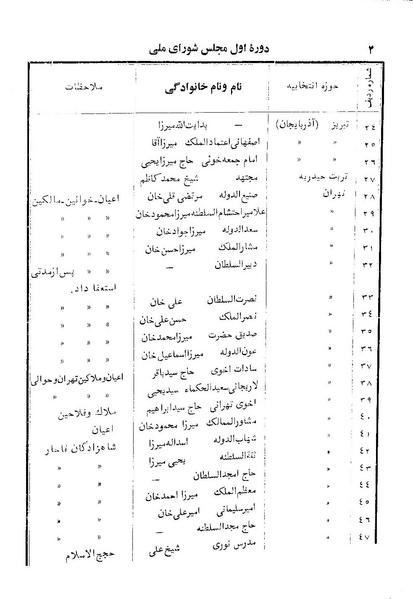 ۳ دورهٔ اول مجلس شورای ملی
شماره ردیف حوزه انتخابیه نام ونام خانوادگی ملاحظات
۲٤ تبریز (آذربایجان) — بدایت‌الله میرزا
۲٥ » » اصفهانی اعتمادالملک میرزا آقا
۲٦ » » امام جمعه خوئی حاج میرزا یحیی
۲۷ تربت حیدریه مجتهد شیخ محمد کاظم
۲۸ تهران صنیع الدوله مرتضی قلی خان اعیان-خوانین-مالکین
۲۹ » علامیر احتشام السلطنه میرزا محمود خان » » »
۳۰ » سعدالدوله میرزا جواد خان » » »
۳۱ » مشارالملک میرزا حسن خان » » »
۳۲ » دبیرالسلطان — » » پس از مدتی
استعفا داد.
۳۳ » نصرت السلطان علی خان » »
۳٤ » نصرالملک حسن علی خان » »
۳٥ » صدیق حضرت میرزا محمد خان » »
۳٦ » عون الدوله میرزا اسماعیل خان » »
۳۷ » سادات اخوی حاج سید باقر اعیان و ملاکین تهران و حوالی
۳۸ » لاریجانی سعید الحکماء سید یحیی » »
۳۹ » اخوی تهرانی حاج سید ابراهیم ملاک و فلاحین
٤۰ » مشاورالممالک میرزا محمود خان اعیان
٤۱ » شهاب الدوله اسداله میرزا شاهزادگان قاجار
٤۲ » ثقة السلطنه یحیی میرزا » »
٤۳ » حاج امجد السلطان — » »
٤٤ » معظم الملک میرزا احمد خان » »
٤٥ » امیر سلیمانی امیر علی خان » »
٤٦ » حاج مجد السلطنه — » »
٤۷ » مدرس نوری شیخ علی حجج الاسلام